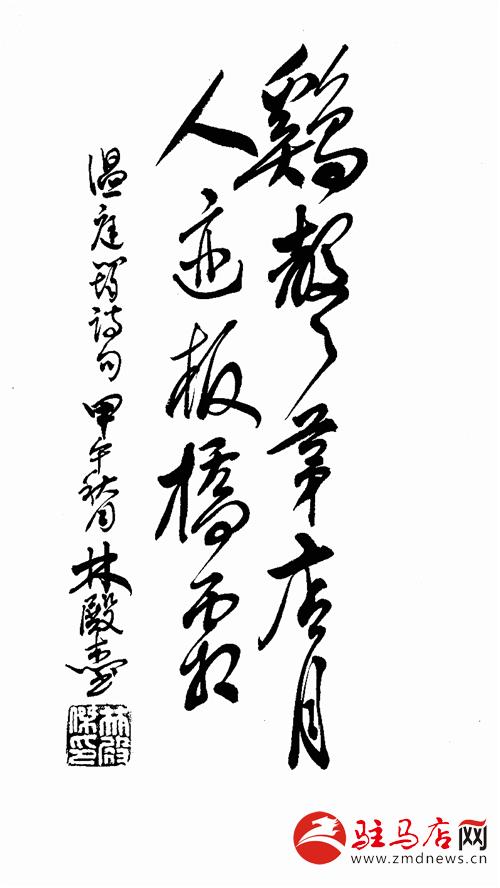 鷄聲茅店月
人迹板橋霜
温庭筠詩句 甲午秋月 林殿杰書
林殿傑印
驻马店网
www.zmdnews.cn